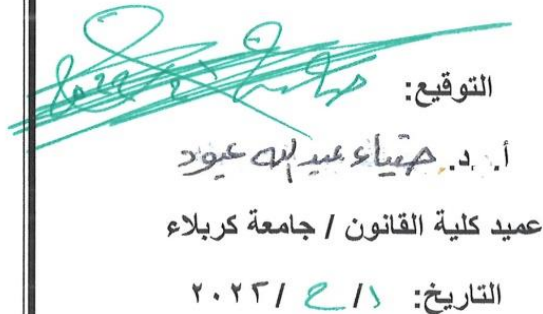 التوقيع:
أ. د. ضياء عبد الله عبود
عميد كلية القانون / جامعة كربلاء
التاريخ: ١ / ٢ / ٢٠٢٢